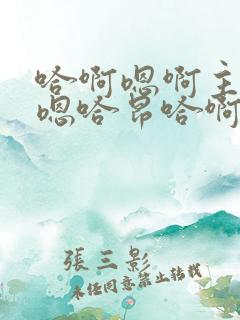 哈啊嗯啊主
嗯哈昂哈啊
張三影
未经同意禁止转载